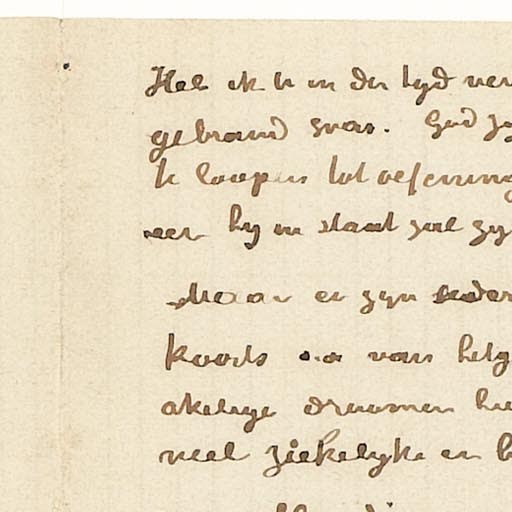 Heb ik U in der tyd ver
gebrand was. God zy
te loopen tot oefening
eer hy in staat zal zyn
Maar er zyn
koorts van hetg
akelige droomen hee
veel ziekelyke en b